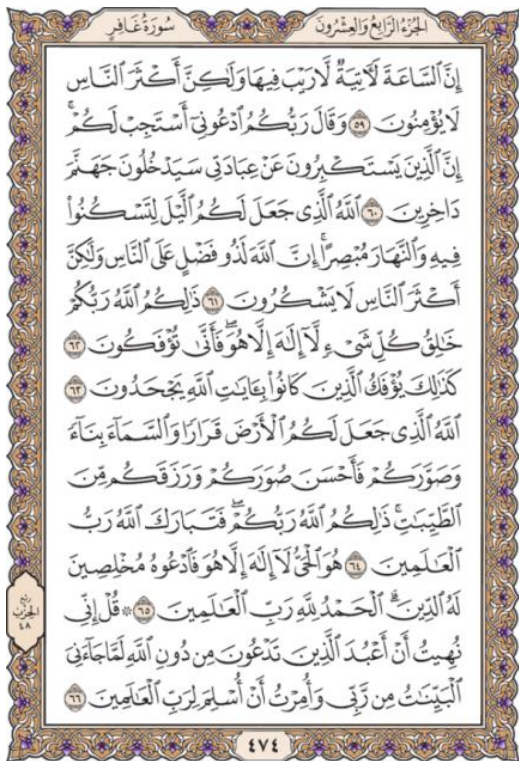 الجُزْءُ الرَّابِعُ وَالعِشْرُونَ
سُورَةُ غَافِرٍ
إِنَّ ٱلسَّاعَةَ لَأٓتِيَةٌ لَّا رَيْبَ فِيهَا وَلَٰكِنَّ أَكْثَرَ ٱلنَّاسِ
لَا يُؤْمِنُونَ ٥٩ وَقَالَ رَبُّكُمُ ٱدْعُونِيٓ أَسْتَجِبْ لَكُمْۚ
إِنَّ ٱلَّذِينَ يَسْتَكْبِرُونَ عَنْ عِبَادَتِي سَيَدْخُلُونَ جَهَنَّمَ
دَاخِرِينَ ٦٠ ٱللَّهُ ٱلَّذِي جَعَلَ لَكُمُ ٱلَّيْلَ لِتَسْكُنُوا۟
فِيهِ وَٱلنَّهَارَ مُبْصِرًاۚ إِنَّ ٱللَّهَ لَذُو فَضْلٍ عَلَى ٱلنَّاسِ وَلَٰكِنَّ
أَكْثَرَ ٱلنَّاسِ لَا يَشْكُرُونَ ٦١ ذَٰلِكُمُ ٱللَّهُ رَبُّكُمْ
خَٰلِقُ كُلِّ شَيْءٍ لَّآ إِلَٰهَ إِلَّا هُوَۖ فَأَنَّىٰ تُؤْفَكُونَ ٦٢
كَذَٰلِكَ يُؤْفَكُ ٱلَّذِينَ كَانُوا۟ بِـَٔايَٰتِ ٱللَّهِ يَجْحَدُونَ ٦٣
ٱللَّهُ ٱلَّذِي جَعَلَ لَكُمُ ٱلْأَرْضَ قَرَارًا وَٱلسَّمَآءَ بِنَآءً
وَصَوَّرَكُمْ فَأَحْسَنَ صُوَرَكُمْ وَرَزَقَكُم مِّنَ
ٱلطَّيِّبَٰتِۚ ذَٰلِكُمُ ٱللَّهُ رَبُّكُمْۖ فَتَبَارَكَ ٱللَّهُ رَبُّ
ٱلْعَٰلَمِينَ ٦٤ هُوَ ٱلْحَيُّ لَآ إِلَٰهَ إِلَّا هُوَ فَٱدْعُوهُ مُخْلِصِينَ
لَهُ ٱلدِّينَۗ ٱلْحَمْدُ لِلَّهِ رَبِّ ٱلْعَٰلَمِينَ ٦٥ ۞ قُلْ إِنِّي
نُهِيتُ أَنْ أَعْبُدَ ٱلَّذِينَ تَدْعُونَ مِن دُونِ ٱللَّهِ لَمَّا جَآءَنِيَ
ٱلْبَيِّنَٰتُ مِن رَّبِّي وَأُمِرْتُ أَنْ أُسْلِمَ لِرَبِّ ٱلْعَٰلَمِينَ ٦٦
ربع
الحزب
٤٨
٤٧٤